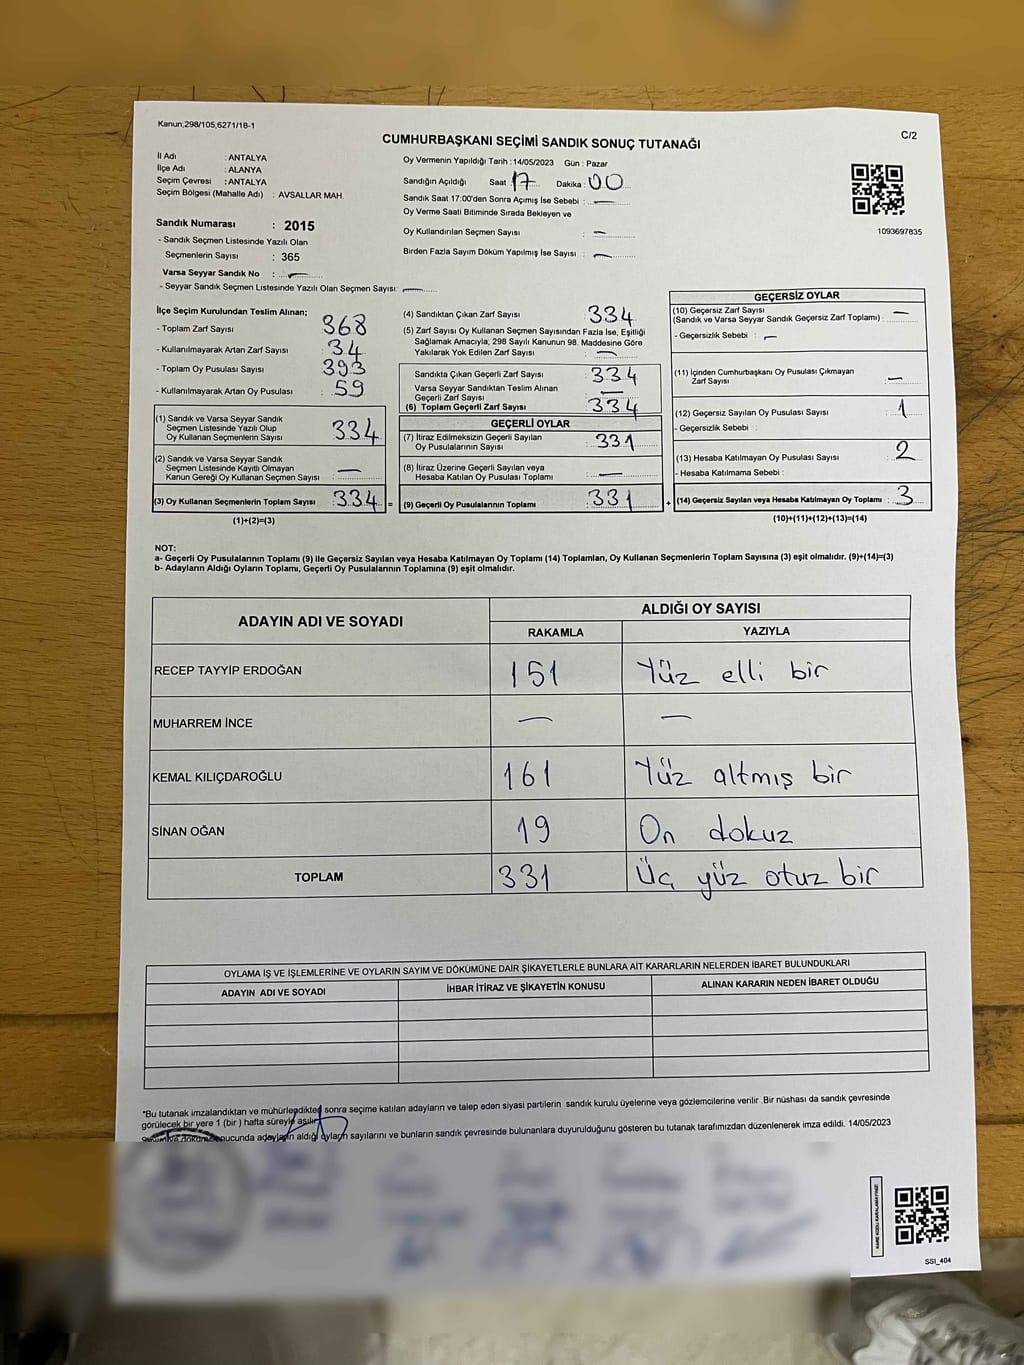 Kanun;298/105,6271/18-1
C/2
CUMHURBAŞKANI SEÇİMİ SANDIK SONUÇ TUTANAĞI
İl Adı : ANTALYA
İlçe Adı : ALANYA
Seçim Çevresi : ANTALYA
Seçim Bölgesi (Mahalle Adı) : AVSALLAR MAH.
Sandık Numarası : 2015
- Sandık Seçmen Listesinde Yazılı Olan
Seçmenlerin Sayısı : 365
Varsa Seyyar Sandık No : —
- Seyyar Sandık Seçmen Listesinde Yazılı Olan Seçmen Sayısı: —
Oy Vermenin Yapıldığı Tarih : 14/05/2023 Gün : Pazar
Sandığın Açıldığı Saat 17 Dakika : 00
Sandık Saat 17:00'den Sonra Açımış İse Sebebi : —
Oy Verme Saati Bitiminde Sırada Bekleyen ve
Oy Kullandırılan Seçmen Sayısı : —
Birden Fazla Sayım Döküm Yapılmış İse Sayısı : —
1093697835
İlçe Seçim Kurulundan Teslim Alınan;
- Toplam Zarf Sayısı : 368
- Kullanılmayarak Artan Zarf Sayısı : 34
- Toplam Oy Pusulası Sayısı : 393
- Kullanılmayarak Artan Oy Pusulası : 59
(1) Sandık ve Varsa Seyyar Sandık
Seçmen Listesinde Yazılı Olup
Oy Kullanan Seçmenlerin Sayısı : 334
(2) Sandık ve Varsa Seyyar Sandık
Seçmen Listesinde Kayıtlı Olmayan
Kanun Gereği Oy Kullanan Seçmen Sayısı : —
(3) Oy Kullanan Seçmenlerin Toplam Sayısı : 334 =
(1)+(2)=(3)
(4) Sandıktan Çıkan Zarf Sayısı : 334
(5) Zarf Sayısı Oy Kullanan Seçmen Sayısından Fazla İse, Eşitliği
Sağlamak Amacıyla; 298 Sayılı Kanunun 98. Maddesine Göre
Yakılarak Yok Edilen Zarf Sayısı : —
Sandıkta Çıkan Geçerli Zarf Sayısı : 334
Varsa Seyyar Sandıktan Teslim Alınan
Geçerli Zarf Sayısı : —
(6) Toplam Geçerli Zarf Sayısı : 334
GEÇERLİ OYLAR
(7) İtiraz Edilmeksizin Geçerli Sayılan
Oy Pusulalarının Sayısı : 331
(8) İtiraz Üzerine Geçerli Sayılan veya
Hesaba Katılan Oy Pusulası Toplamı : —
(9) Geçerli Oy Pusulalarının Toplamı : 331 +
GEÇERSİZ OYLAR
(10) Geçersiz Zarf Sayısı
(Sandık ve Varsa Seyyar Sandık Geçersiz Zarf Toplamı) : —
- Geçersizlik Sebebi : —
(11) İçinden Cumhurbaşkanı Oy Pusulası Çıkmayan
Zarf Sayısı : —
(12) Geçersiz Sayılan Oy Pusulası Sayısı : 1
- Geçersizlik Sebebi :
(13) Hesaba Katılmayan Oy Pusulası Sayısı : 2
- Hesaba Katılmama Sebebi :
(14) Geçersiz Sayılan veya Hesaba Katılmayan Oy Toplamı : 3
(10)+(11)+(12)+(13)=(14)
NOT:
a- Geçerli Oy Pusulalarının Toplamı (9) ile Geçersiz Sayılan veya Hesaba Katılmayan Oy Toplamı (14) Toplamları, Oy Kullanan Seçmenlerin Toplam Sayısına (3) eşit olmalıdır. (9)+(14)=(3)
b- Adayların Aldığı Oyların Toplamı, Geçerli Oy Pusulalarının Toplamına (9) eşit olmalıdır.
ADAYIN ADI VE SOYADI
ALDIĞI OY SAYISI
RAKAMLA YAZIYLA
RECEP TAYYİP ERDOĞAN 151 Yüz elli bir
MUHARREM İNCE — —
KEMAL KILIÇDAROĞLU 161 Yüz altmış bir
SİNAN OĞAN 19 On dokuz
TOPLAM 331 Üç yüz otuz bir
OYLAMA İŞ VE İŞLEMLERİNE VE OYLARIN SAYIM VE DÖKÜMÜNE DAİR ŞİKAYETLERLE BUNLARA AİT KARARLARIN NELERDEN İBARET BULUNDUKLARI
ADAYIN ADI VE SOYADI İHBAR İTİRAZ VE ŞİKAYETİN KONUSU ALINAN KARARIN NEDEN İBARET OLDUĞU
*Bu tutanak imzalandıktan ve mühürlendikten sonra seçime katılan adayların ve talep eden siyasi partilerin sandık kurulu üyelerine veya gözlemcilerine verilir .Bir nüshası da sandık çevresinde
görülecek bir yere 1 (bir ) hafta süreyle asılır.
adayların aldığı oyların sayılarını ve bunların sandık çevresinde bulunanlara duyurulduğunu gösteren bu tutanak tarafımızdan düzenlenerek imza edildi. 14/05/2023
SSI_404